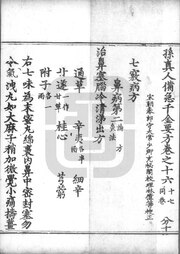 孫真人備急千金要方卷之十六 十七同卷 分十
宋朝奉郎守太常少卿充祕閣校理林億等校正
七竅病方
鼻病第二 論一首 方 灸法
治鼻塞腦冷清涕出方
通草 辛夷 各半兩 細辛
甘遂 一作甘草 桂心 芎藭
附子 各一兩
右七味為末蜜丸綿裹內鼻中密封塞勿
令氣洩丸如大麻子稍加微覺小痛擣薑